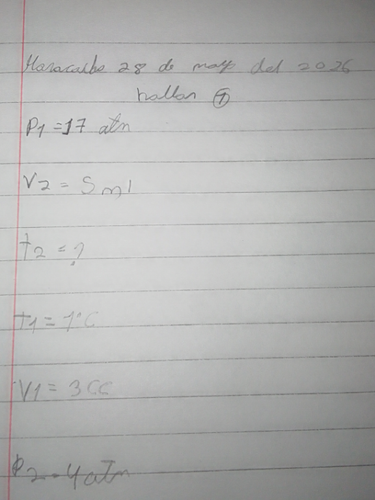 Maracaibo 28 de mayo del 2026
hallar T
P1 = 17 atm
V2 = 5 ml
t2 = ?
t1 = 1°C
V1 = 3 CC
P2 = 4 atm